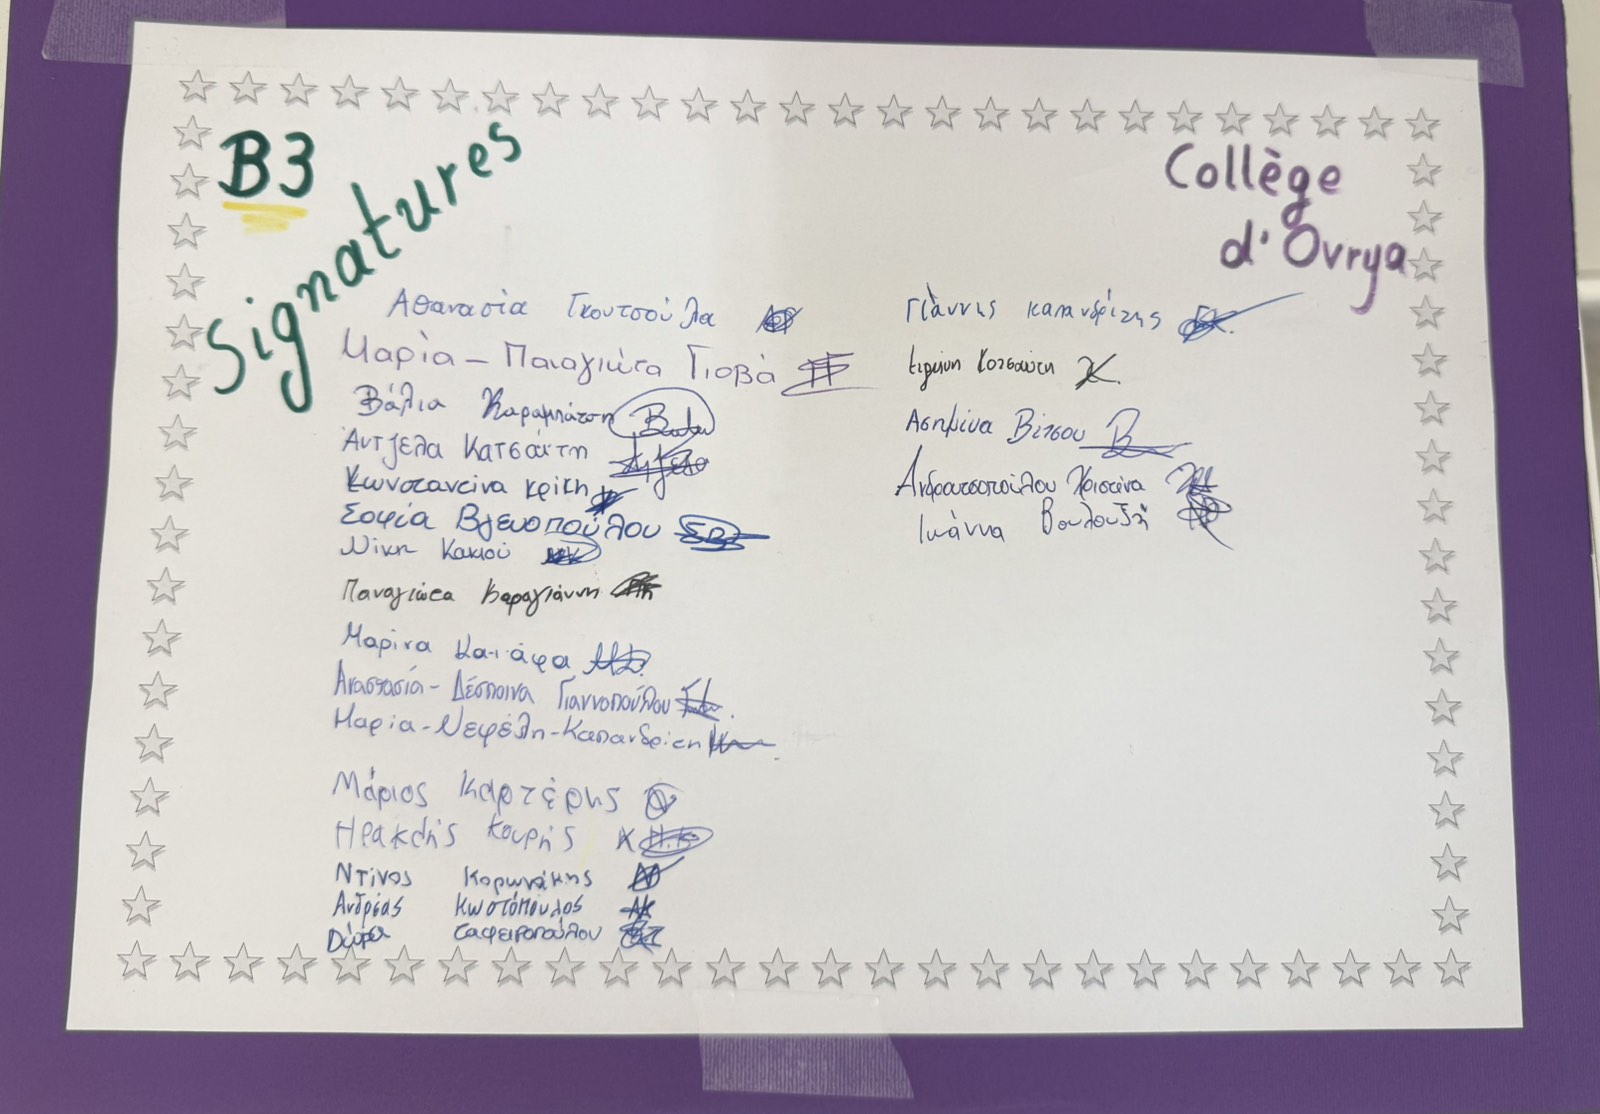 B3
Signatures
Collège
d'Ovrya
Αθανασία Γκουτσούλα
Μαρία - Παναγιώτα Γιοβά
Βάλια Καραμπάτση
Άντζελα Κατσαΐτη
Κωνσταντίνα Κρίκη
Σοφία Βγενοπούλου
Νίκη Κακιού
Παναγιώτα Καραγιάννη
Μαρίνα
Αναστασία - Δέσποινα Γιαννοπούλου
Μαρία - Νεφέλη - Καπανδρίτη
Μάριος Καρτέρης
Ηρακλής Κουρής
Ντίνος Κορωνάκης
Ανδρέας Κωστόπουλος
Δώρα Σαφειροπούλου
Γιάννης Καπανδρίτης
Ειρήνη Κοτσαύτη
Ασημίνα Βίτσου
Ανδρατσοπούλου Χριστίνα
Ιωάννα Βουλουζή